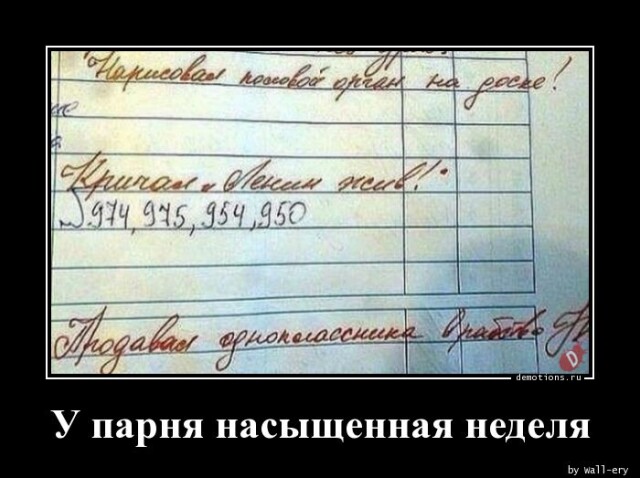 Нарисовал половой орган на доске!
Кричал „Ленин жив!"
974, 975, 954, 950
Продавал одноклассника в рабство
demotions.ru
У парня насыщенная неделя
by wall-ery